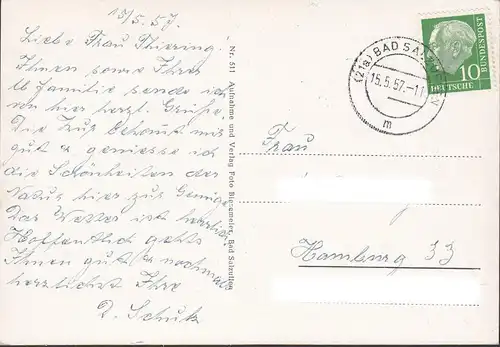 15/5.57.
Liebe Frau Thiering.
Ihnen sowie Ihrer
lb Familie sende ich
von hier herzl. Grüße,
Die Kur bekommt mir
gut & geniesse ich
die Schönheiten der
Natur hier zur Genüge
Das Wetter ist herrlich
Hoffentlich gehts
Ihnen gut & nochmal
herzlichst Ihre
D. Schulz
Nr. 511 Aufnahme und Verlag Foto Biegemeier, Bad Salzuflen
(21a) BAD SALZUFLEN
15.5.57.-11
m
10
DEUTSCHE
BUNDESPOST
Frau
Hamburg 33